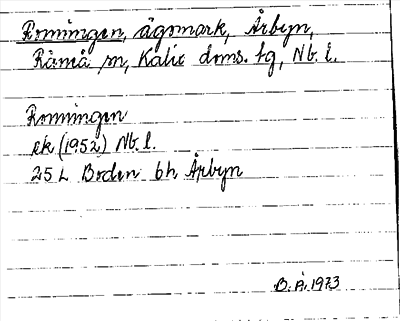 Romningen, ägomark, Årbyn,
Råneå sn, Kalix doms. tg, Nb. l.
Romningen
ek (1952) Nb. l.
25 L Boden bh Årbyn
B. Å. 1973